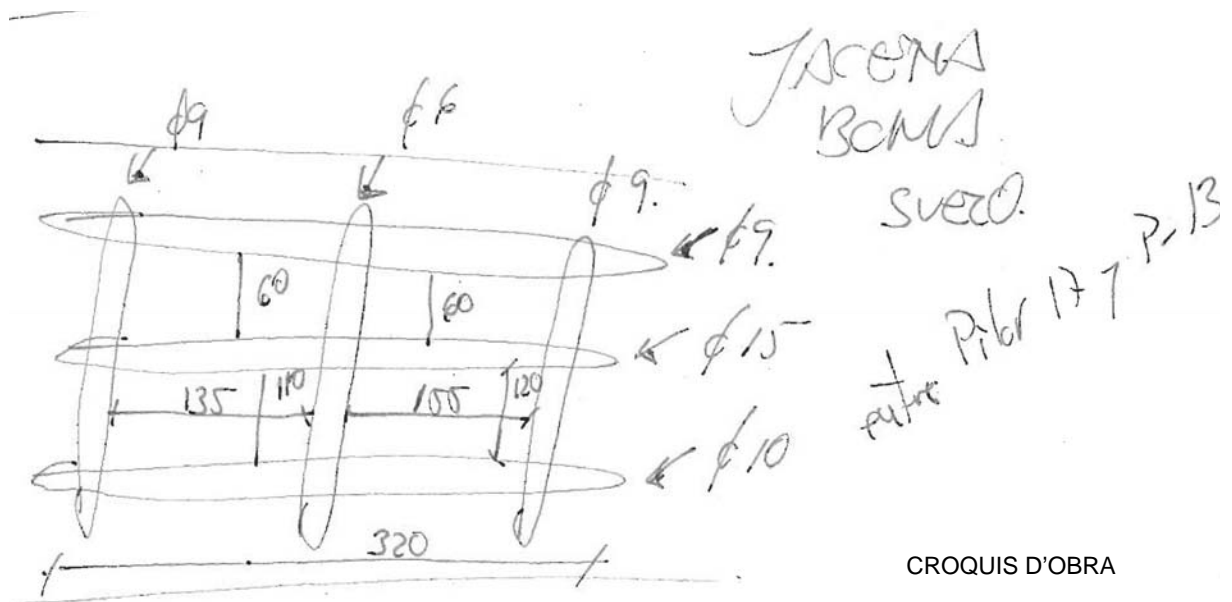 JACENA
BONA
SUERO.
entre Pilar 17 y P. 13
ϕ9
ϕ6
ϕ9.
ϕ9.
60
60
ϕ15
135
110
100
120
ϕ10
320
CROQUIS D'OBRA